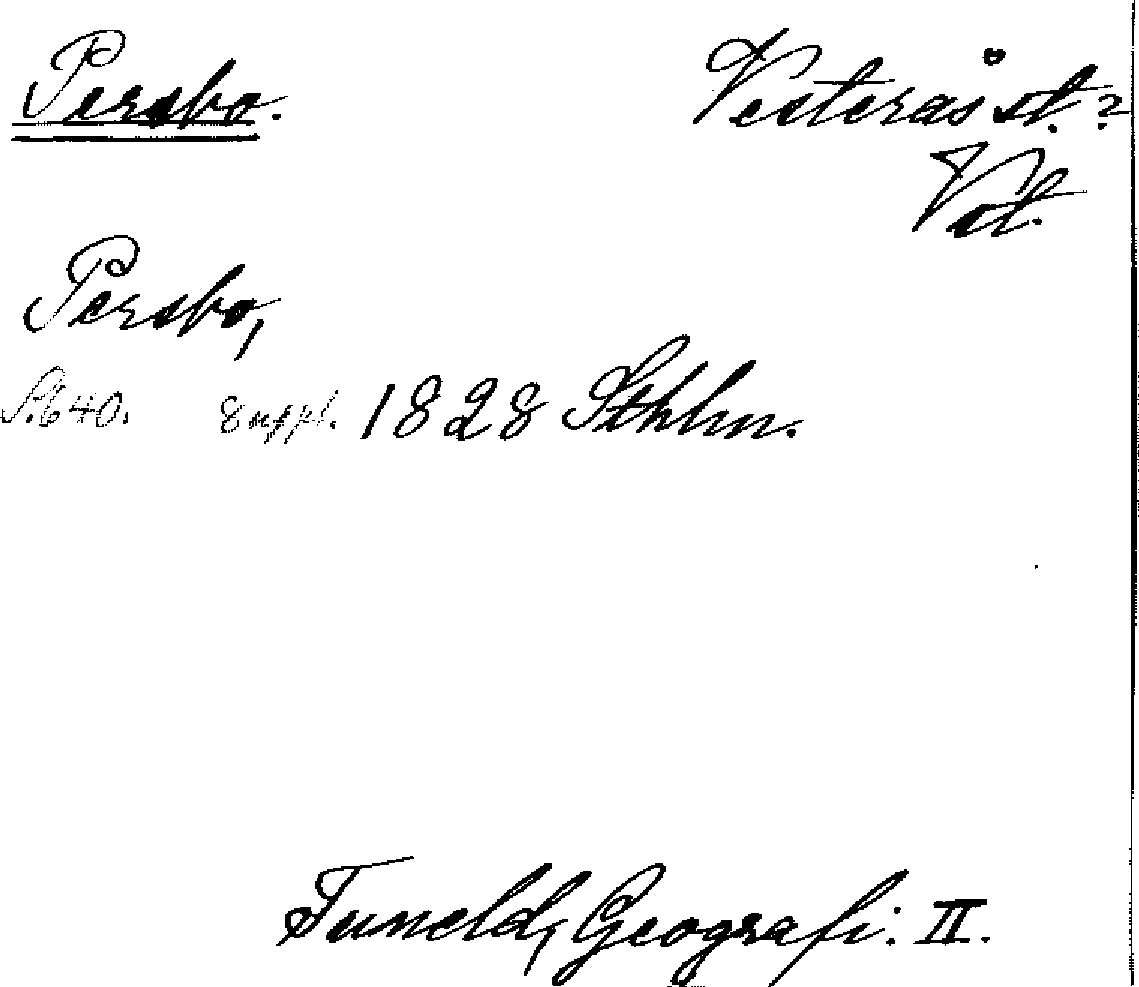 Persbo. Vesterås st.?
Vst.
Persbo,
S. 640. Suppl. 1828 Sthlm.
Tuneld, Geografi. II.